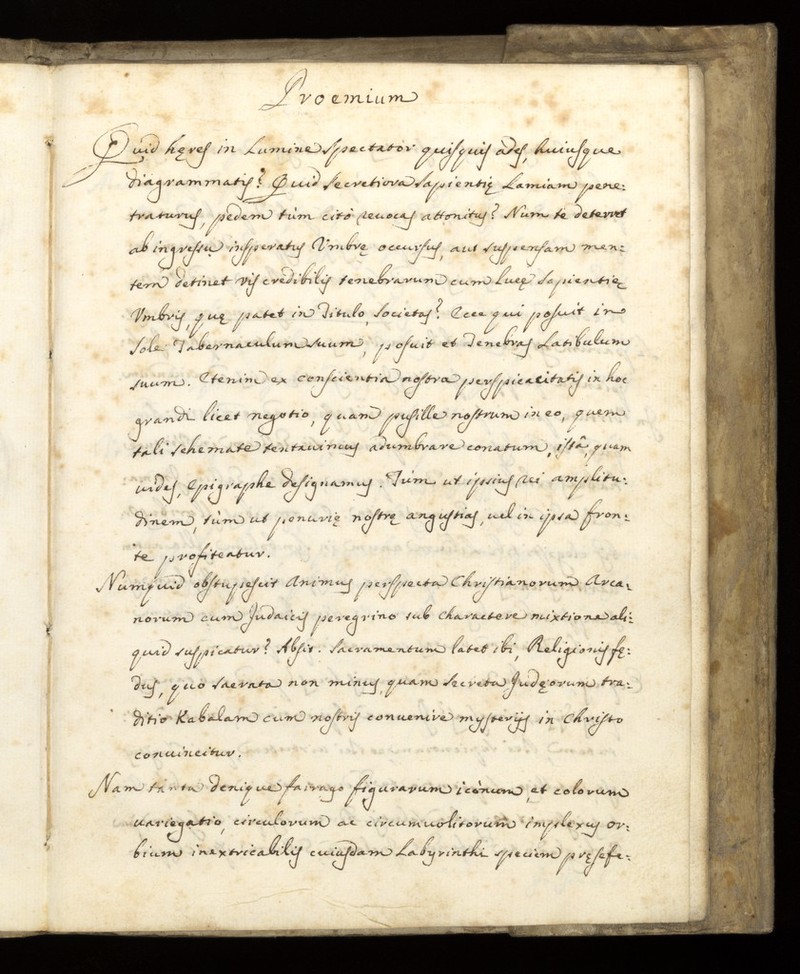 Proemium
Quid hęres in Lumine spectator quisquis ades, huiusque
diagrammatis? Quid secretiora sapientię Lamiam pene:
traturus, pedem tùm citò reuocas attonitus? Num te deterret
ab ingressu insperatus Vmbrę occursus, aut suspensam men:
tem detinet vis credibilis tenebrarum cum luce Sapientię
Vmbris, quę patet in Titulo, societas? Ecce qui posuit in
Sole Tabernaculum suum, posuit et Tenebras Latibulum
suum. Etenim ex conscientia nostra perspicacitatis in hoc
grandi licet negotio, quam pusille nostrum in eo, quem
tali schemate tentauimus adumbrare conatum, istâ, quam
uides, Epigraphe designamus. Tùm ut ipsius rei amplitu:
dinem, tùm ut penurię nostrę angustias, uel in ipsa fron:
te profiteatur.
Numquid obstupescit Animus perspecta Christianorum Arca:
norum cum Judaicis peregrino sub charactere mixtione ali:
quid suspicatur? Absit. Sacramentum latet ibi, Religionis fę:
dus, quo sacrata non minus, quam secreta Judęorum tra:
ditio Kabalam cum nostris conuenire mysterijs in Christo
conuincitur.
Nam tanta denique farrago figurarum iconum, et colorum
uariegatio, circulorum ac circumuolitorum implexus or:
bium inextricabilis cuiusdam Labyrinthi speciem pręsefe: